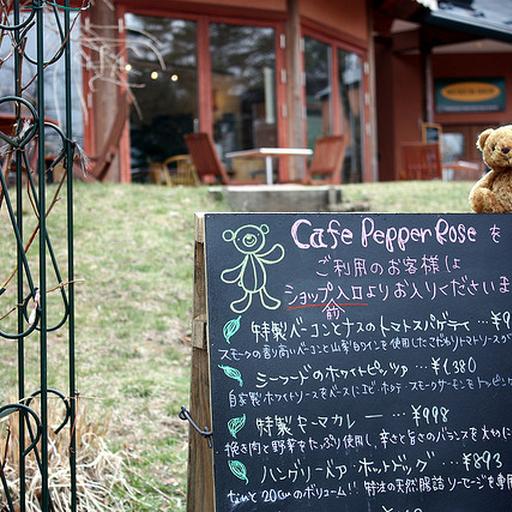 Cafe PepperRose を
ご利用のお客様は
ショップ入口よりお入りくださいま
前
特製ベーコンとナスのトマトスパゲティ…¥9
スモークの香り高いベーコンと山梨白ワインを使用したこだわりトマトソースが
シーフードのホワイトピッツァ…¥1,380
自家製ホワイトソースをベースにエビ・ホタテ・スモークサーモンをトッピン
特製キーマカレー…¥998
挽き肉と野菜をたっぷり使用し、辛さと旨さのバランスを大切に
ハングリーベア・ホットドッグ…¥893
なんと20cmのボリューム!! 特注の天然腸詰ソーセージを専用